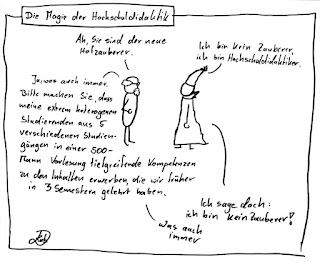 Die Magie der Hochschuldidaktik
Ah, Sie sind der neue
Hofzauberer.
Ich bin kein Zauberer,
ich bin Hochschuldidaktiker.
Ja, was auch immer.
Bitte machen Sie, dass
meine extrem heterogenen
Studierenden aus 5
verschiedenen Studien-
gängen in einer 500-
Mann Vorlesung tiefgreifende Kompetenzen
zu den Inhalten erwerben, die wir früher
in 3 Semestern gelehrt haben.
Ich sage doch:
ich bin kein Zauberer!
Was auch
immer